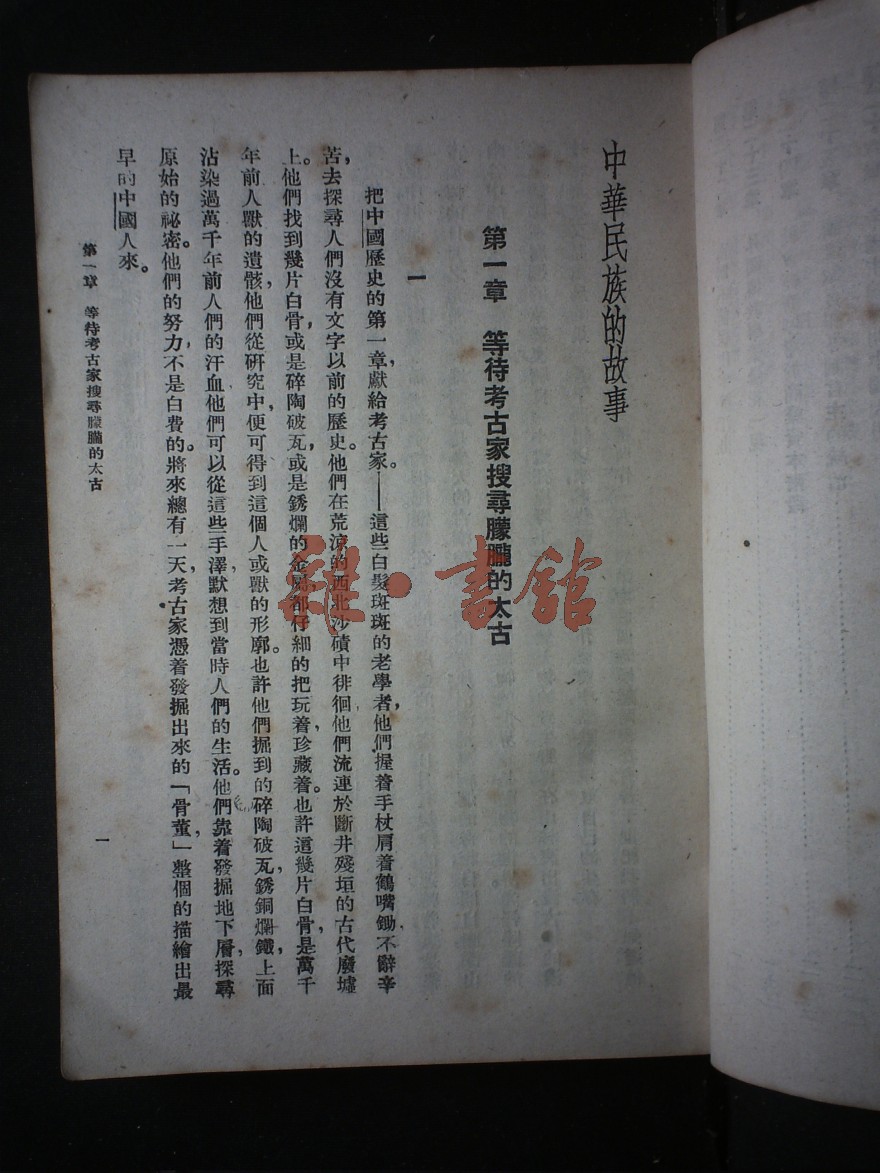 中華民族的故事
第一章　等待考古家搜尋朦朧的太古
一
把中國歷史的第一章，獻給考古家。——這些白髮斑斑的老學者，他們握着手杖肩着鶴嘴鋤，不辭辛
苦，去探尋人們沒有文字以前的歷史。他們在荒涼的西北沙磧中徘徊，他們流連於斷井殘垣的古代廢墟
上。他們找到幾片白骨，或是碎陶破瓦，或是銹爛的金屬，都仔細的把玩着珍藏着。也許這幾片白骨，是萬千
年前人獸的遺骸，他們從研究中，便可得到這個人或獸的形廓。也許他們掘到的碎陶破瓦，銹銅爛鐵，上面
沾染過萬千年前人們的汗血，他們可以從這些手澤，默想到當時人們的生活。他們靠着發掘地下層，探尋
原始的祕密。他們的努力，不是白費的。將來總有一天，考古家憑着發掘出來的「骨董，」整個的描繪出最
早的中國人來。
第一章　等待考古家搜尋朦朧的太古
一
雜·書館